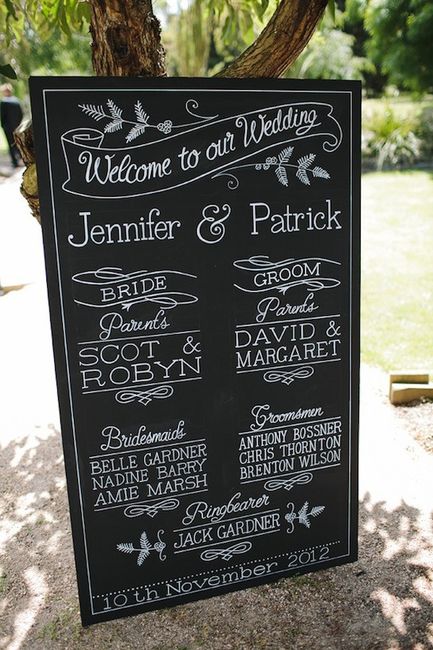 Welcome to our Wedding
Jennifer & Patrick
BRIDE
Parents
SCOT &
ROBYN
GROOM
Parents
DAVID &
MARGARET
Bridesmaids
BELLE GARDNER
NADINE BARRY
AMIE MARSH
Groomsmen
ANTHONY BOSSNER
CHRIS THORNTON
BRENTON WILSON
Ringbearer
JACK GARDNER
10 th November 2012